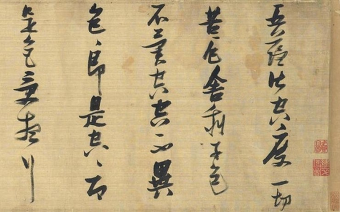 五蘊皆空度一切
苦厄舍利子色
不異空空不異
色色即是空空即
是色受想行